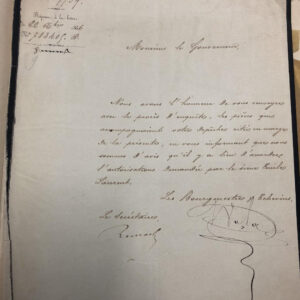 Réponse à la lettre
du 22
Monsieur le Gouverneur,
Nous avons l'honneur de vous renvoyer
avec le procès d'enquête, les pièces qui
accompagnaient votre dépêche citée en marge
de la présente, en vous informant que nous
sommes d'avis qu'il y a lieu d'accorder
l'autorisation demandée par le sieur Emile
Laurent.
Les Bourgmestre & Echevins,
Le Secrétaire,